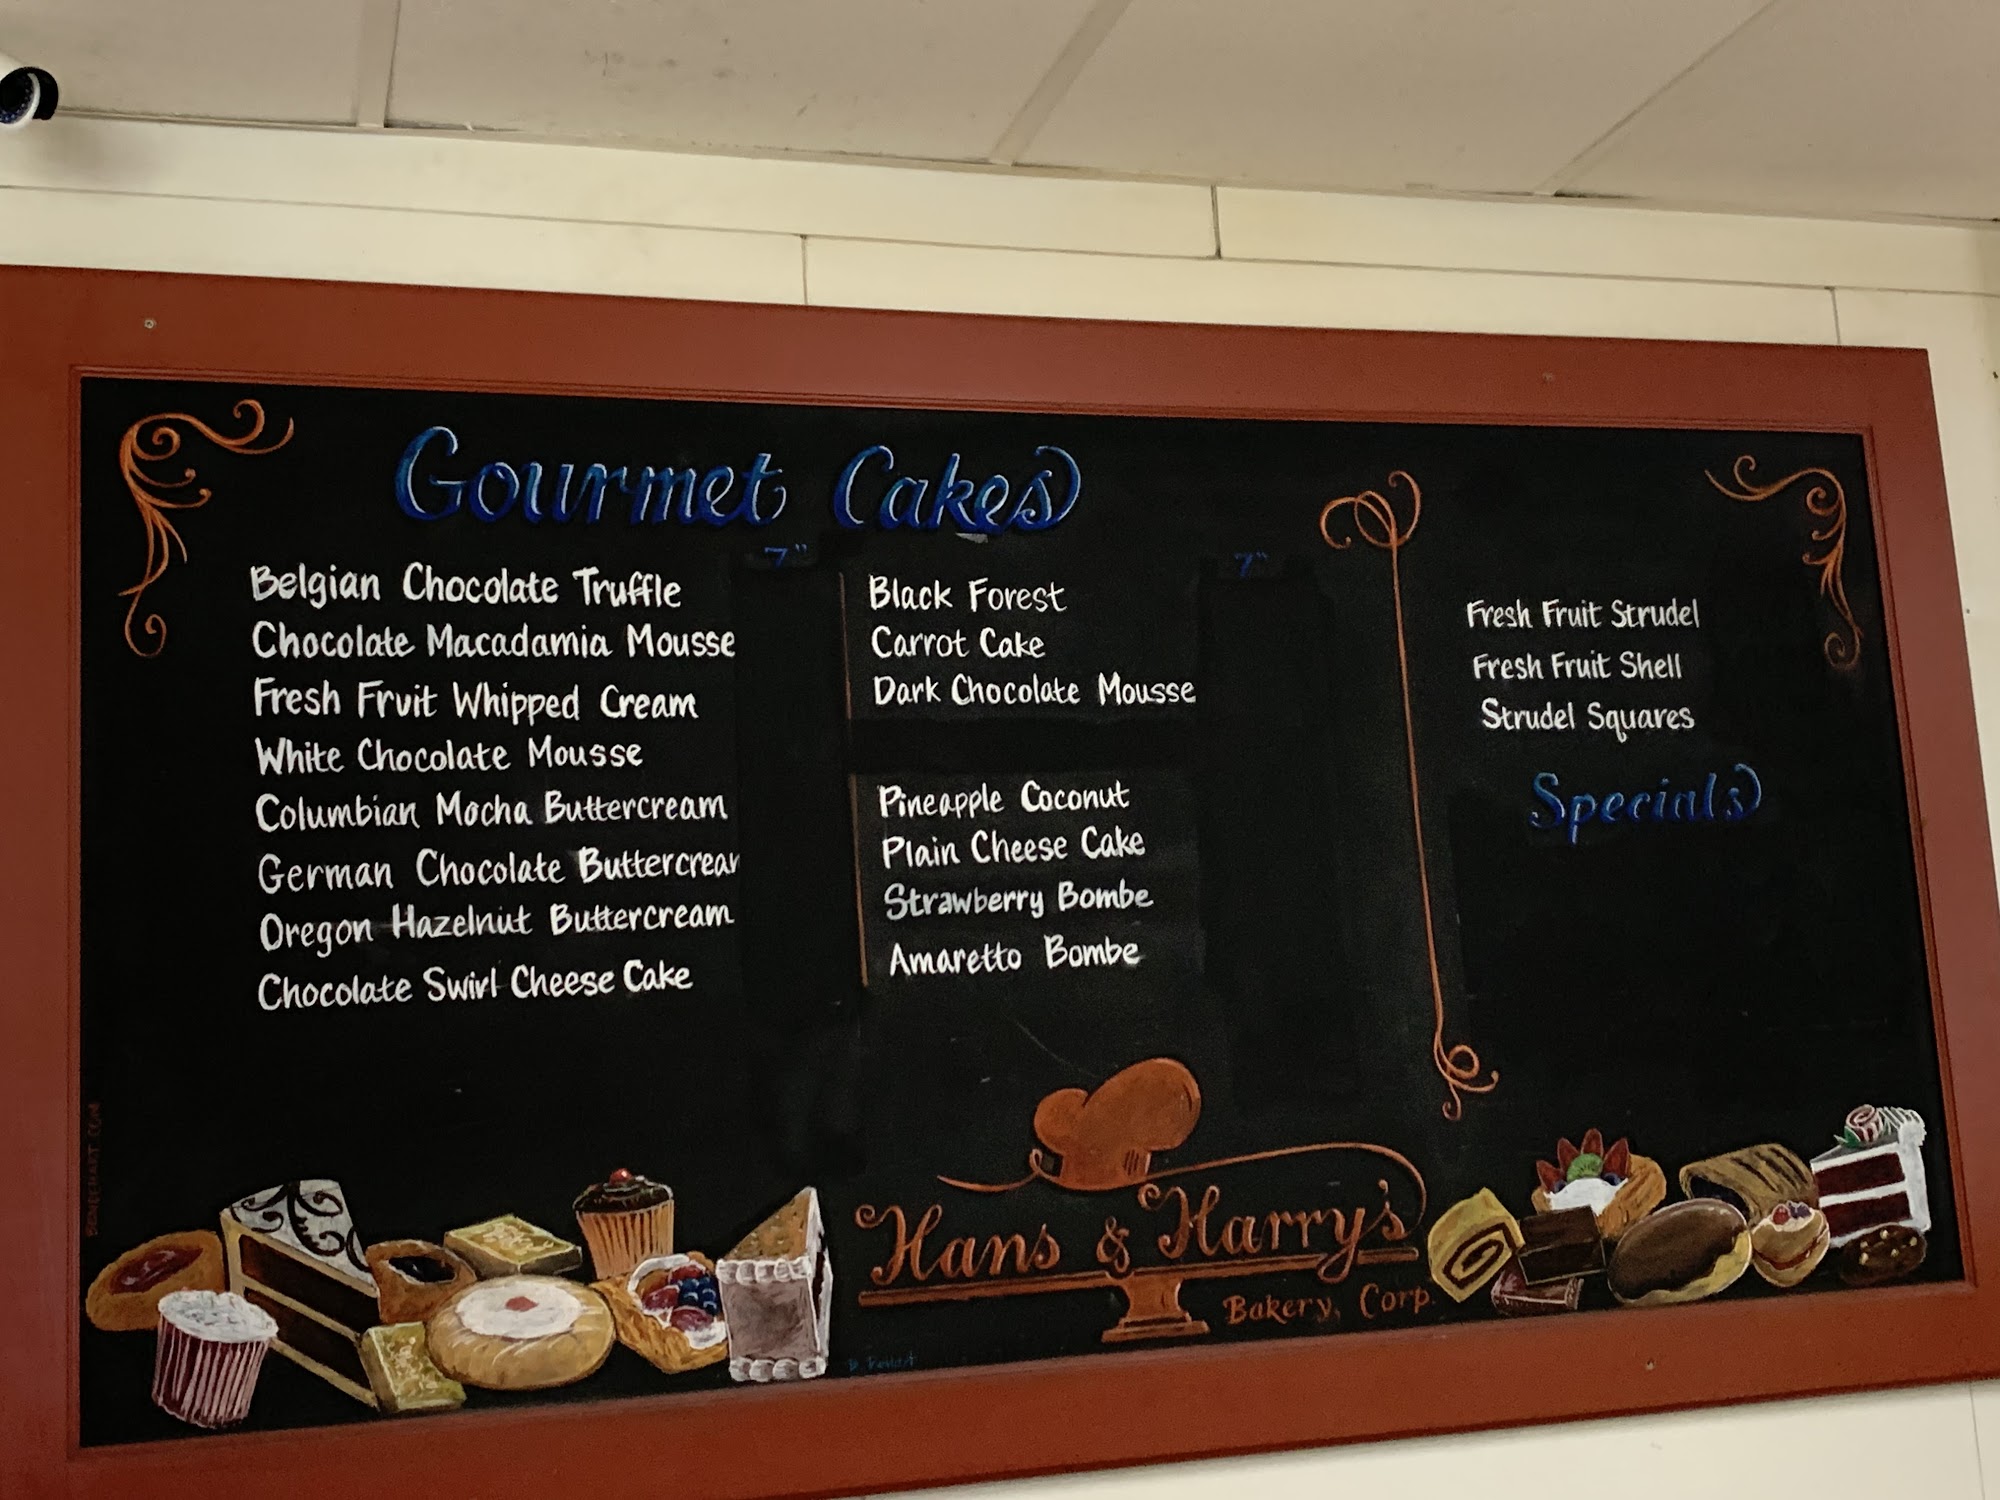 Gourmet Cakes
7"
7"
Belgian Chocolate Truffle
Chocolate Macadamia Mousse
Fresh Fruit Whipped Cream
White Chocolate Mousse
Columbian Mocha Buttercream
German Chocolate Buttercrear
Oregon Hazelnut Buttercream
Chocolate Swirl Cheese Cake
Black Forest
Carrot Cake
Dark Chocolate Mousse
Pineapple Coconut
Plain Cheese Cake
Strawberry Bombe
Amaretto Bombe
Fresh Fruit Strudel
Fresh Fruit Shell
Strudel Squares
Specials
Hans & Harry's
Bakery, Corp.